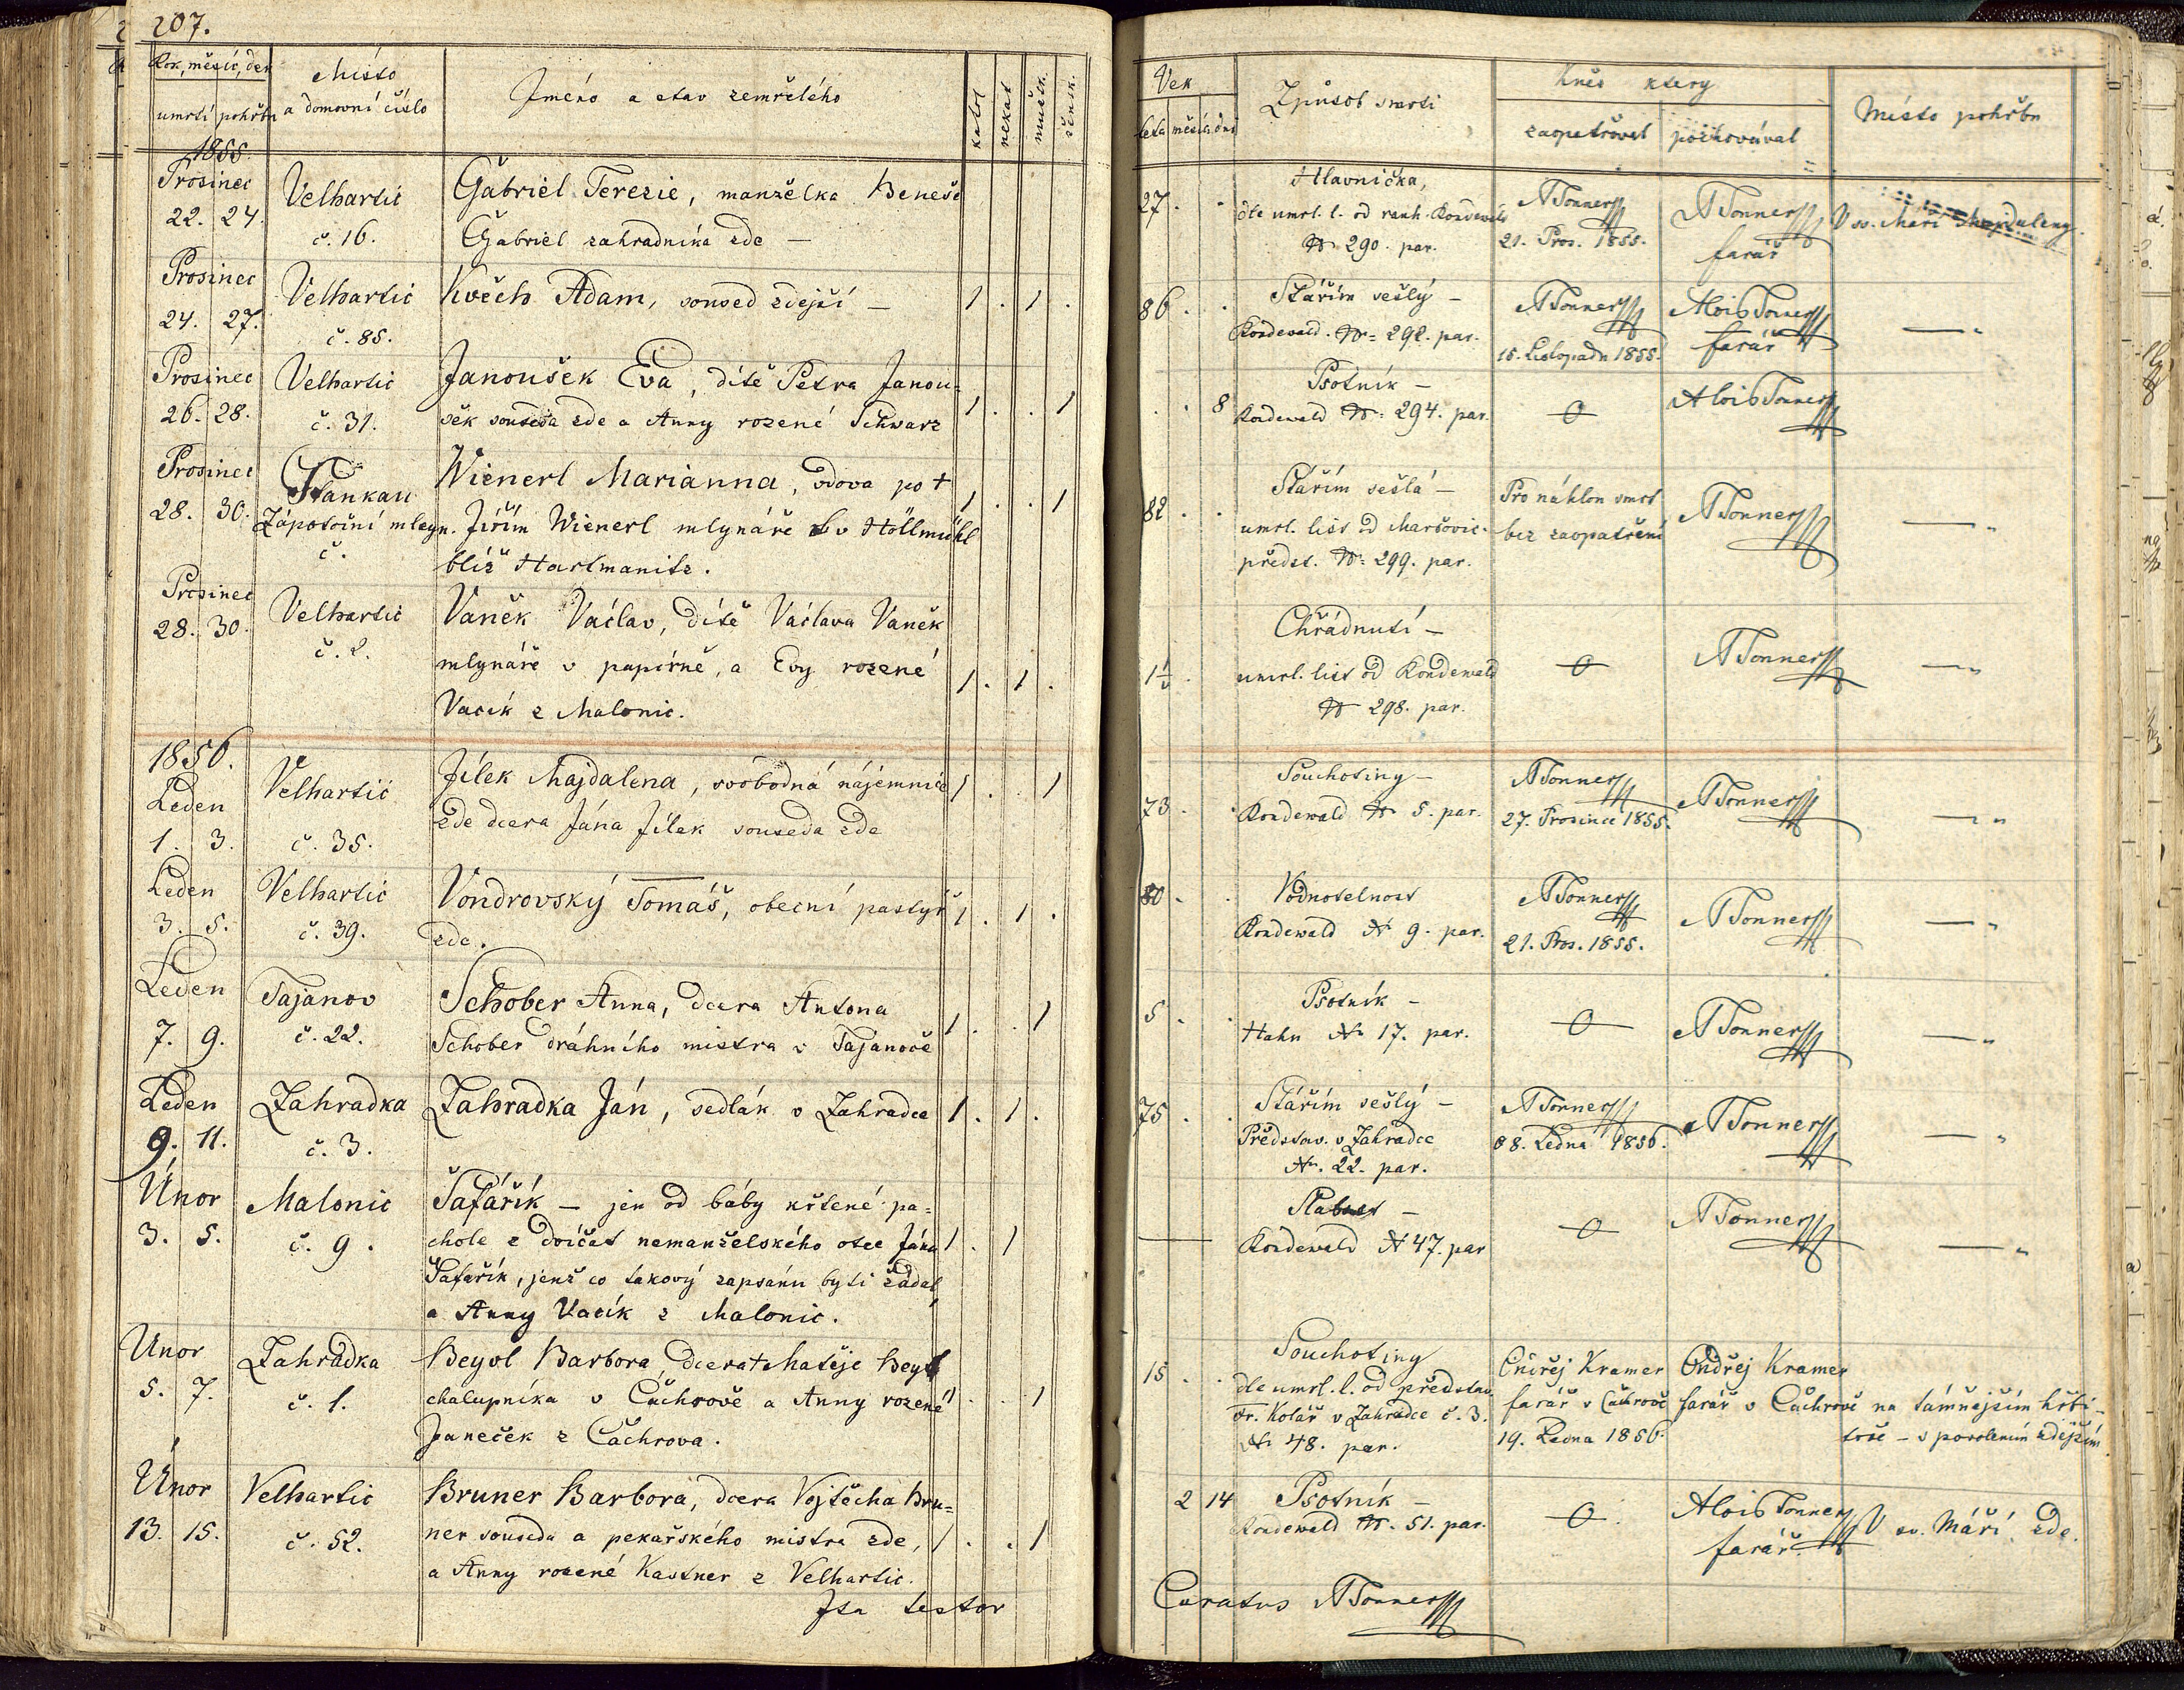 207.
Rok, měsíc, den
umrtí pohřbu
Místo
a domovní číslo
Jméno a stav zemřelého
katol
nekat
mužsk.
žensk.
1855.
Prosinec
22. 24.
Velhartic
č. 16.
Gabriel Terezie, manželka Beneše
Gabriel zahradníka zde —
Prosinec
24. 27.
Velhartic
č. 85.
Květh Adam, soused zdejší —
1 . 1 .
Prosinec
26. 28.
Velhartic
č. 31.
Janoušek Eva, dítě Petra Janou=
šek souseda zde a Anny rozené Schwarz
1 . . 1
Prosinec
28. 30.
Stankau
Zápotoční mleyn.
č.
Wienerl Marianna, vdova po †
Jiřím Wienerl mlynáře v Höllmühl
blíž Hartmanitz.
1 . . 1
Prosinec
28. 30.
Velhartic
č. 2.
Vaněk Václav, dítě Václava Vaněk
mlynáře v papírně, a Evy rozené
Vacík z Malonic.
1 . 1 .
1856.
Leden
1. 3.
Velhartic
č. 35.
Jílek Majdalena, svobodná nájemnice
zde dcera Jána Jílek souseda zde
1 . . 1
Leden
3. 5.
Velhartic
č. 39.
Vondrovský Tomáš, obecní pastýř
zde.
1 . 1 .
Leden
7. 9.
Tajanov
č. 22.
Schober Anna, dcera Antona
Schober dráhního mistra v Tajanově
1 . . 1
Leden
9. 11.
Zahradka
č. 3.
Zahradka Ján, sedlák v Zahradce
1 . 1 .
Únor
3. 5.
Malonic
č. 9.
Šafařík — jen od báby křtené pa=
chole z dvíčat nemanželského otce Jána
Šafařík, jenž co takový zapsánu byti žádal,
a Anny Vacík z Malonic.
1 . 1
Unor
5. 7.
Zahrádka
č. 1.
Beyvl Barbora, dcera † Matěje Beyvl
chalupníka v Čachrově a Anny rozené
Janeček z Čachrova.
1 . . 1
Únor
13. 15.
Velhartic
č. 52.
Bruner Barbora, dcera Vojtěcha Bru=
ner souseda a pekařského mistra zde,
a Anny rozené Kastner z Velhartic.
1 . . 1
Ita testor
Vek
leta měsíců dni
Způsob smrti
Kněz ktery
zaopatřoval
pochovával
Místo pohřbu
27. .
Hlavnička,
dle umrl. l. od ranh. Kondewald
N 290. par.
ATonner
21. Pros. 1855.
ATonner
farář
V sv. Maří Majdaleny.
86. .
Stářím sešlý —
Kondewald. N= 292. par.
ATonner
15. Listopadu 1855.
Alois Tonner
farář
— "
. . 8
Psotník —
Kondewald N= 294. par.
0
Alois Tonner
82. .
Stářím sešlá —
umrl. list od Maršovic.
předst. N= 299. par.
Pro náhlon smrt
bez zaopatření
ATonner
— "
1½ .
Chřádnutí —
umrl. list od Kondewald
N 298. par.
0
ATonner
— "
73. .
Souchotiny —
Kondewald N 5. par.
ATonner
27. Prosince 1855.
ATonner
— "
80. .
Vodnotelnost
Kondewald N 9. par.
ATonner
21. Pros. 1855.
ATonner
— "
5. .
Psotník —
Hahn N 17. par.
0
ATonner
— "
75. .
Stářím sešlý —
Představ. v Zahradce
N. 22. par.
ATonner
08. Ledna 1856.
ATonner
— "
—
Slabost —
Kondewald N 47. par
0
ATonner
— "
15. .
Souchotiny
dle umrl. l. od představ.
Fr. Kolář v Zahradce č. 3.
N 48. par.
Ondřej Kramer
farář v Čachrově
19. Ledna 1856.
Ondřej Kramer
farář v Čachrově
na támnejším hřbi-
tově — s povolením zdejším
2 14
Psotník —
Kondewald N. 51. par.
0
Alois Tonner
farář.
V sv. Máří zde.
Curatus ATonner